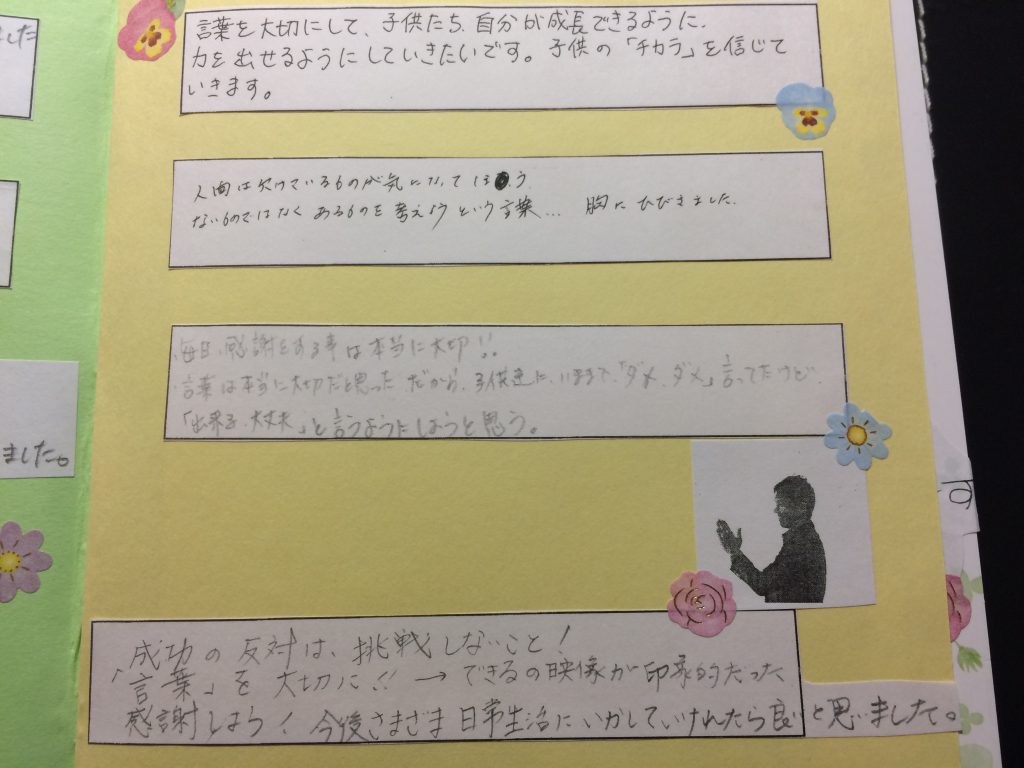 言葉を大切にして、子供たち、自分が成長できるように、
力を出せるようにしていきたいです。子供の「チカラ」を信じて
いきます。
人間は欠けているものが気になってしまう
ないものではなく あるものを考えようという言葉… 胸にひびきました。
毎日、感謝をする事は本当に大切!!
言葉は本当に大切だと思った だから、子供達に、いままで、「ダメ、ダメ」言ってたけど、
「出来る、大丈夫」と言うようにしようと思う。
ました。
す
成功の反対は、挑戦しないこと!
「言葉」を大切に!! → できるの映像が印象的だった
感謝しよう! 今後さまざま日常生活にいかしていけれたら良いと思いました。